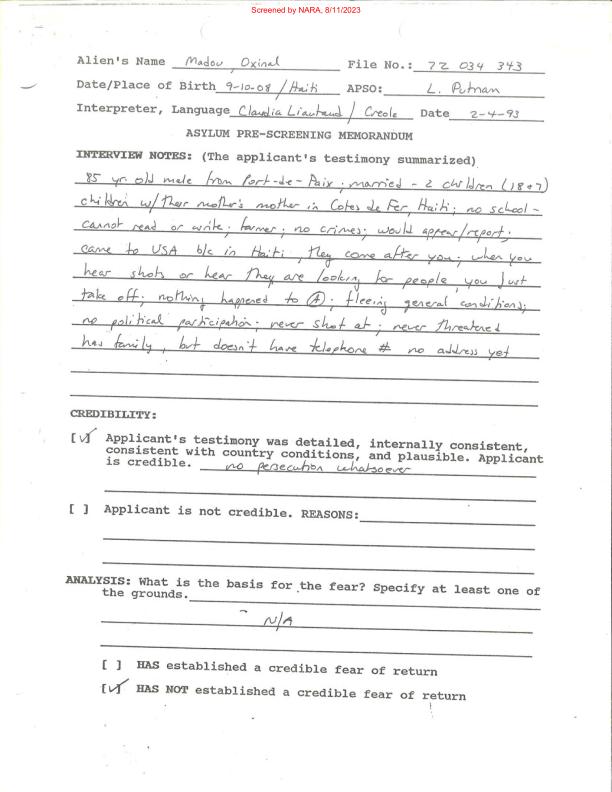 Screened by NARA, 8/11/2023
Alien's Name Madou Oxinal File No.: 72 034 343
Date/Place of Birth 9-10-08 / Haiti APSO: L. Putnan
Interpreter, Language Claudia Liautaud / Creole Date 2-4-93
ASYLUM PRE-SCREENING MEMORANDUM
INTERVIEW NOTES: (The applicant's testimony summarized)
85 yr old male from Port-de-Paix; married - 2 children (18 + 7)
children w/ their mother's mother in Cotes de Fer, Haiti; no school -
cannot read or write; farmer; no crimes; would appear/report;
came to USA b/c in Haiti, they come after you; when you
hear shots or hear they are looking for people, you just
take off; nothing happened to (A); fleeing general conditions;
no political participation; never shot at; never threatened
has family, but doesn't have telephone # no address yet
CREDIBILITY:
[✓] Applicant's testimony was detailed, internally consistent,
consistent with country conditions, and plausible. Applicant
is credible. no persecution whatsoever
[ ] Applicant is not credible. REASONS:
ANALYSIS: What is the basis for the fear? Specify at least one of
the grounds.
N/A
[ ] HAS established a credible fear of return
[✓] HAS NOT established a credible fear of return